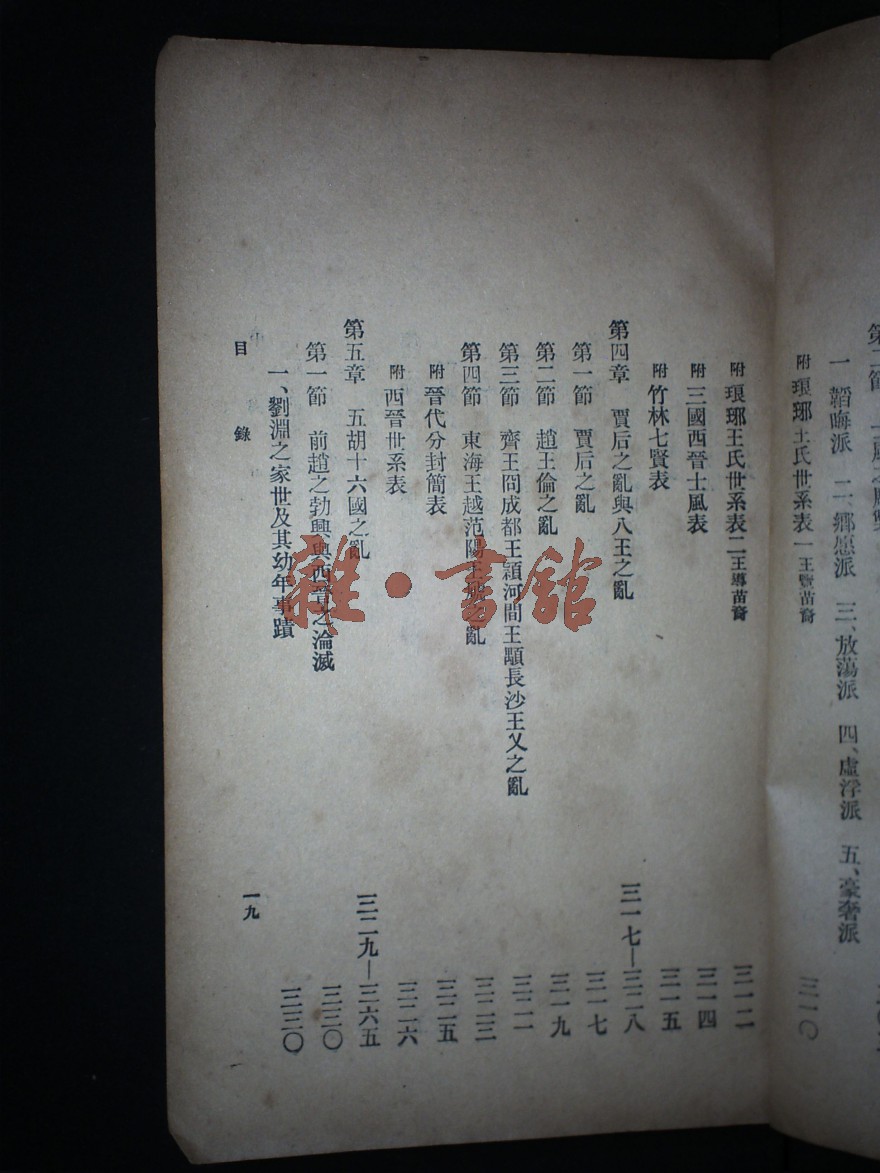 一 韜晦派 二、鄉愿派 三、放蕩派 四、虛浮派 五、豪奢派
附 琅琊王氏世系表一 王覽苗裔 三一〇
附 琅琊王氏世系表二 王導苗裔 三一二
附 三國西晉士風表 三一四
附 竹林七賢表 三一五
第四章 賈后之亂與八王之亂 三一七—三二八
第一節 賈后之亂 三一七
第二節 趙王倫之亂 三一九
第三節 齊王冏成都王穎河間王顒長沙王乂之亂 三二一
第四節 東海王越范陽王虓之亂 三二三
附 晉代分封簡表 三二五
附 西晉世系表 三二六
第五章 五胡十六國之亂 三二九—三六五
第一節 前趙之勃興與西晉之淪滅 三三〇
一、劉淵之家世及其幼年事蹟 三三〇
目錄 一九
雜·書館